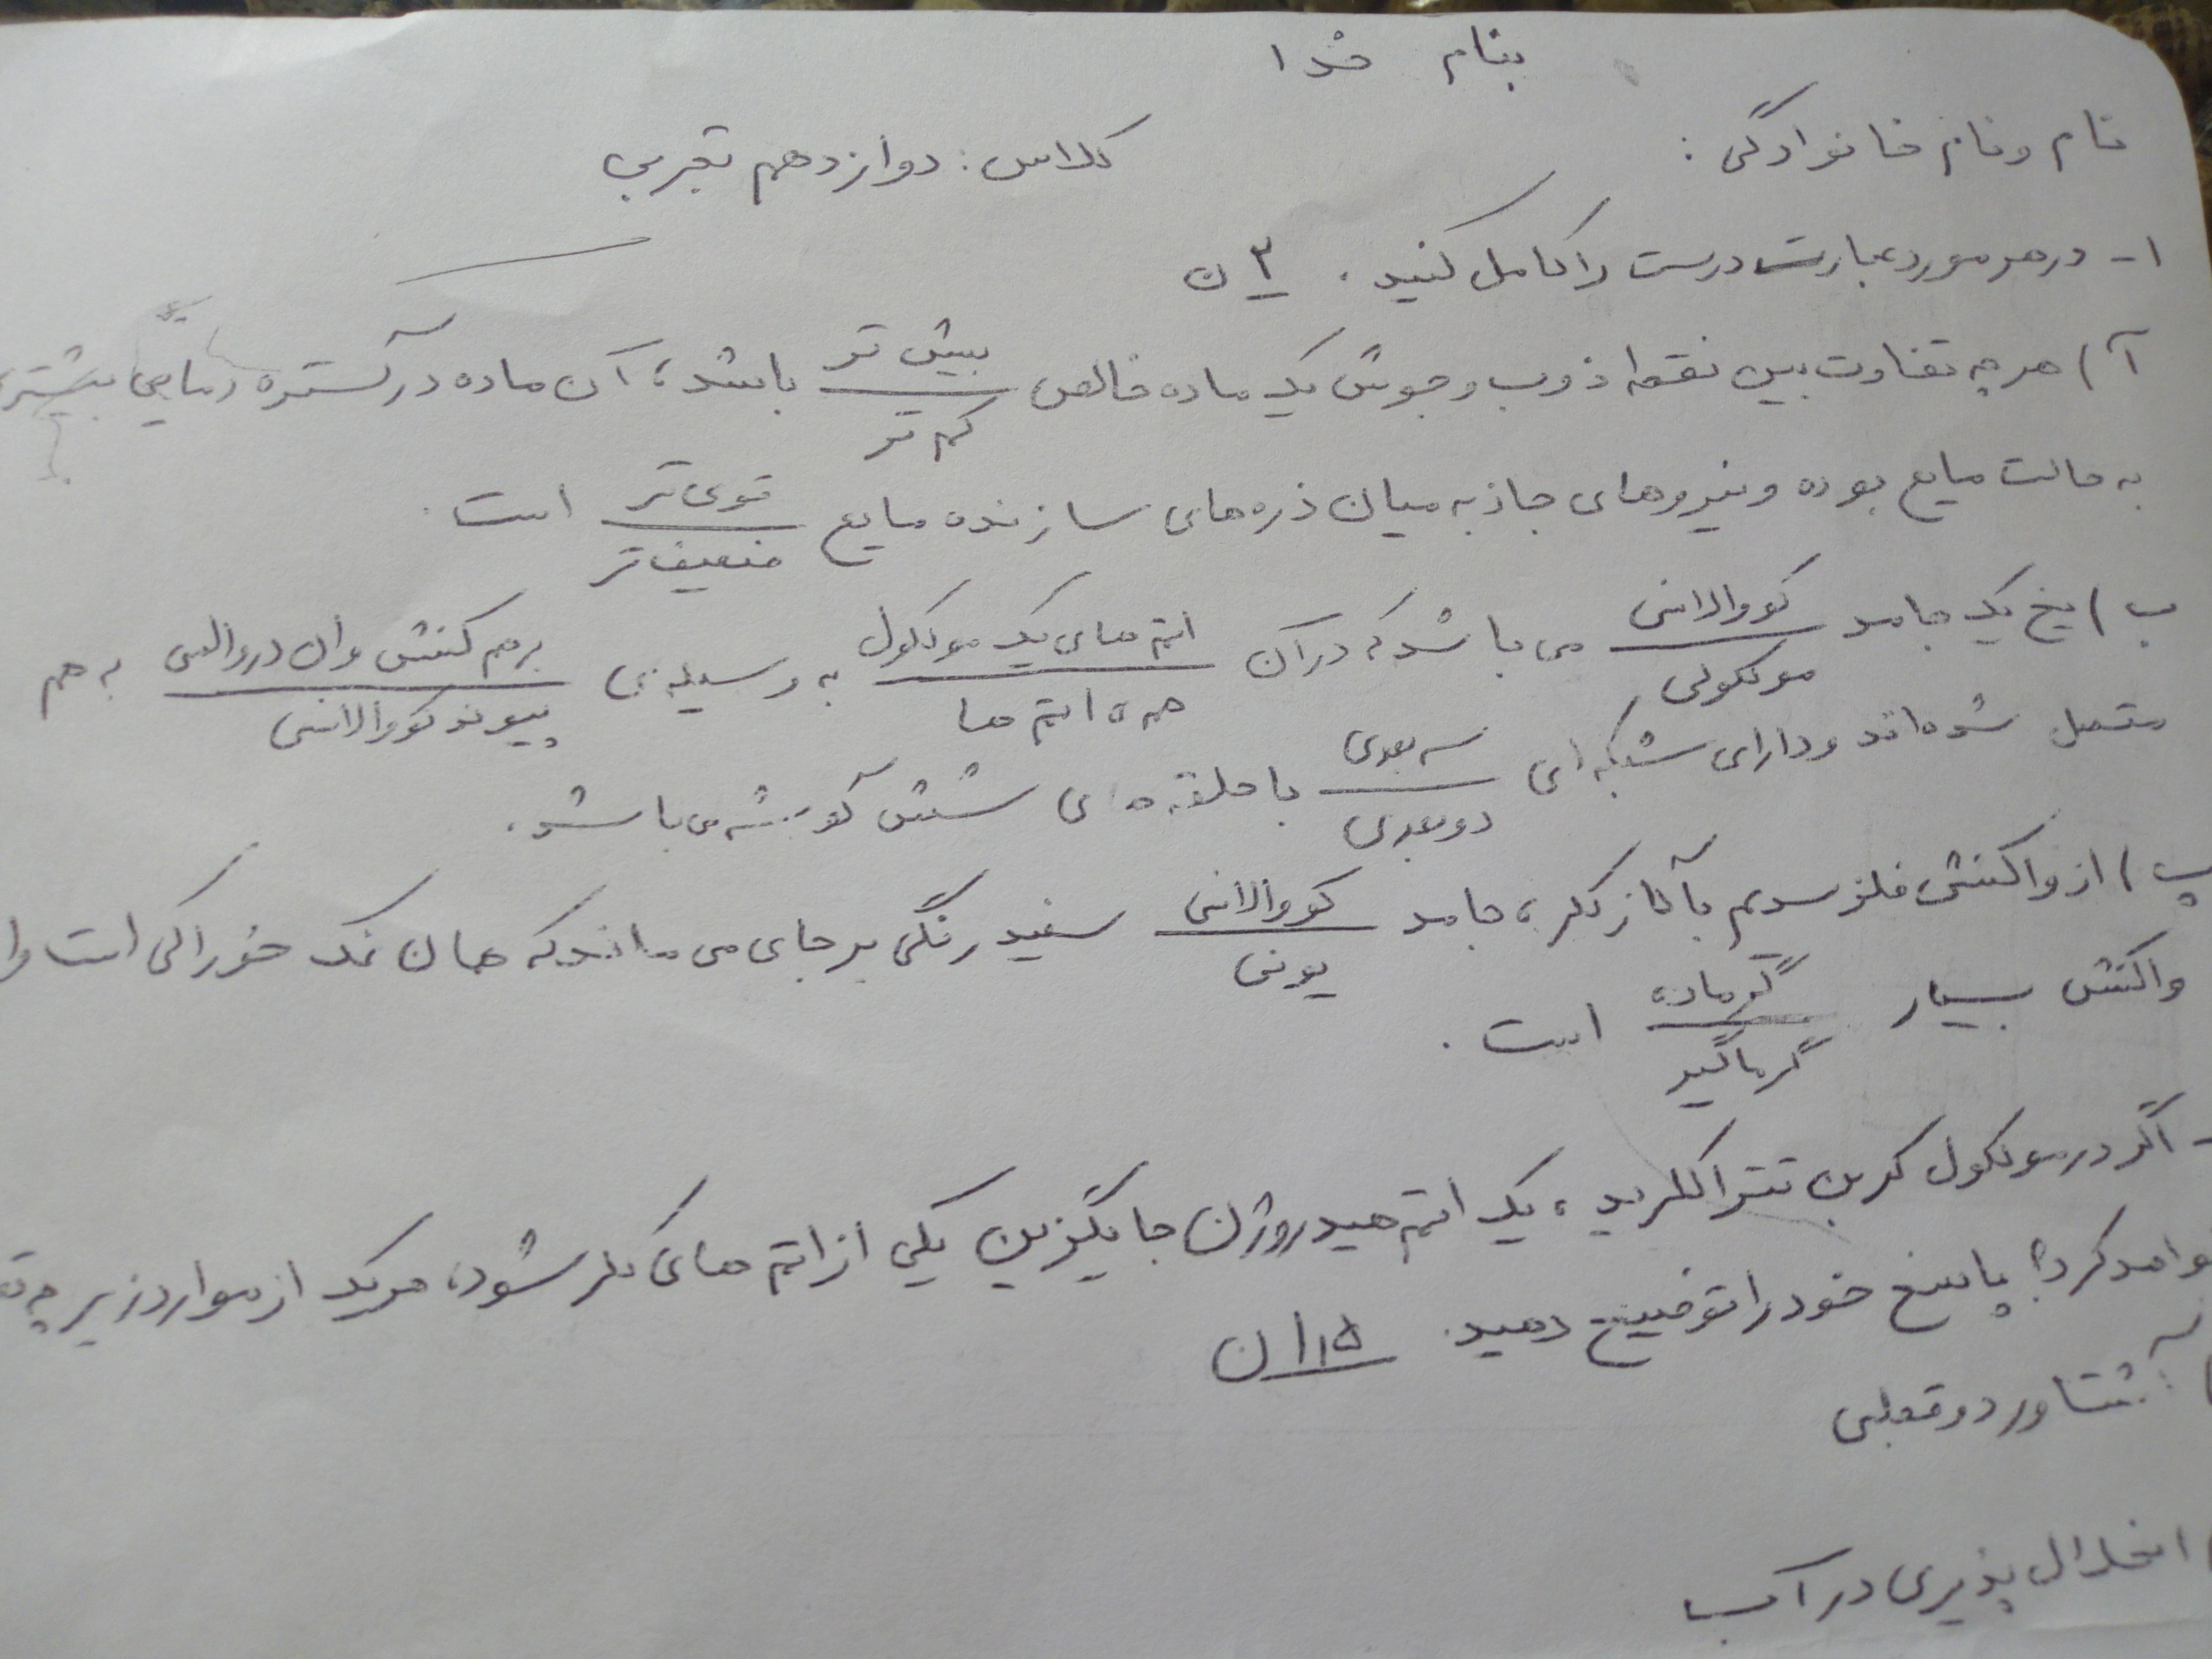 بنام خدا
نام و نام خانوادگی :
کلاس : دوازدهم تجربی
۱- در هر مورد عبارت درست را کامل کنید . ۲ ن
آ) هر چه تفاوت بین نقطه ذوب و جوش یک ماده خالص بیش تر / کم تر باشد ، آن ماده در گستره دمایی بیشتری
به حالت مایع بوده و نیروهای جاذبه میان ذره های سازنده مایع قوی تر / ضعیف تر است .
ب) یخ یک جامد کووالانسی / مولکولی می باشد که در آن اتم های یک مولکول / همه اتم ها به وسیله ی برهم کنش وان دروالسی / پیوند کووالانسی به هم
متصل شده اند و دارای شبکه ای سه بعدی / دو بعدی با حلقه های شش گوشه می باشد .
پ) از واکنش فلز سدیم با گاز کلر ، جامد کووالانسی / یونی سفید رنگی بر جای می ماند که همان نمک خوراکی است و
واکنش بسیار گرماده / گرماگیر است .
- اگر در مولکول کربن تتراکلرید ، یک اتم هیدروژن جایگزین یکی از اتم های کلر شود ، هریک از موارد زیر چه
خواهد کرد؟ پاسخ خود را توضیح دهید . ۱٫۵ ن
گشتاور دوقطبی
انحلال پذیری در آب